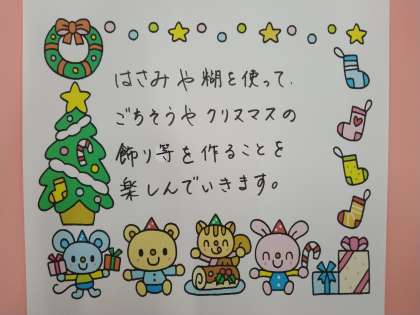 はさみや糊を使って、
ごちそうやクリスマスの
飾り等を作ることを
楽しんでいきます。